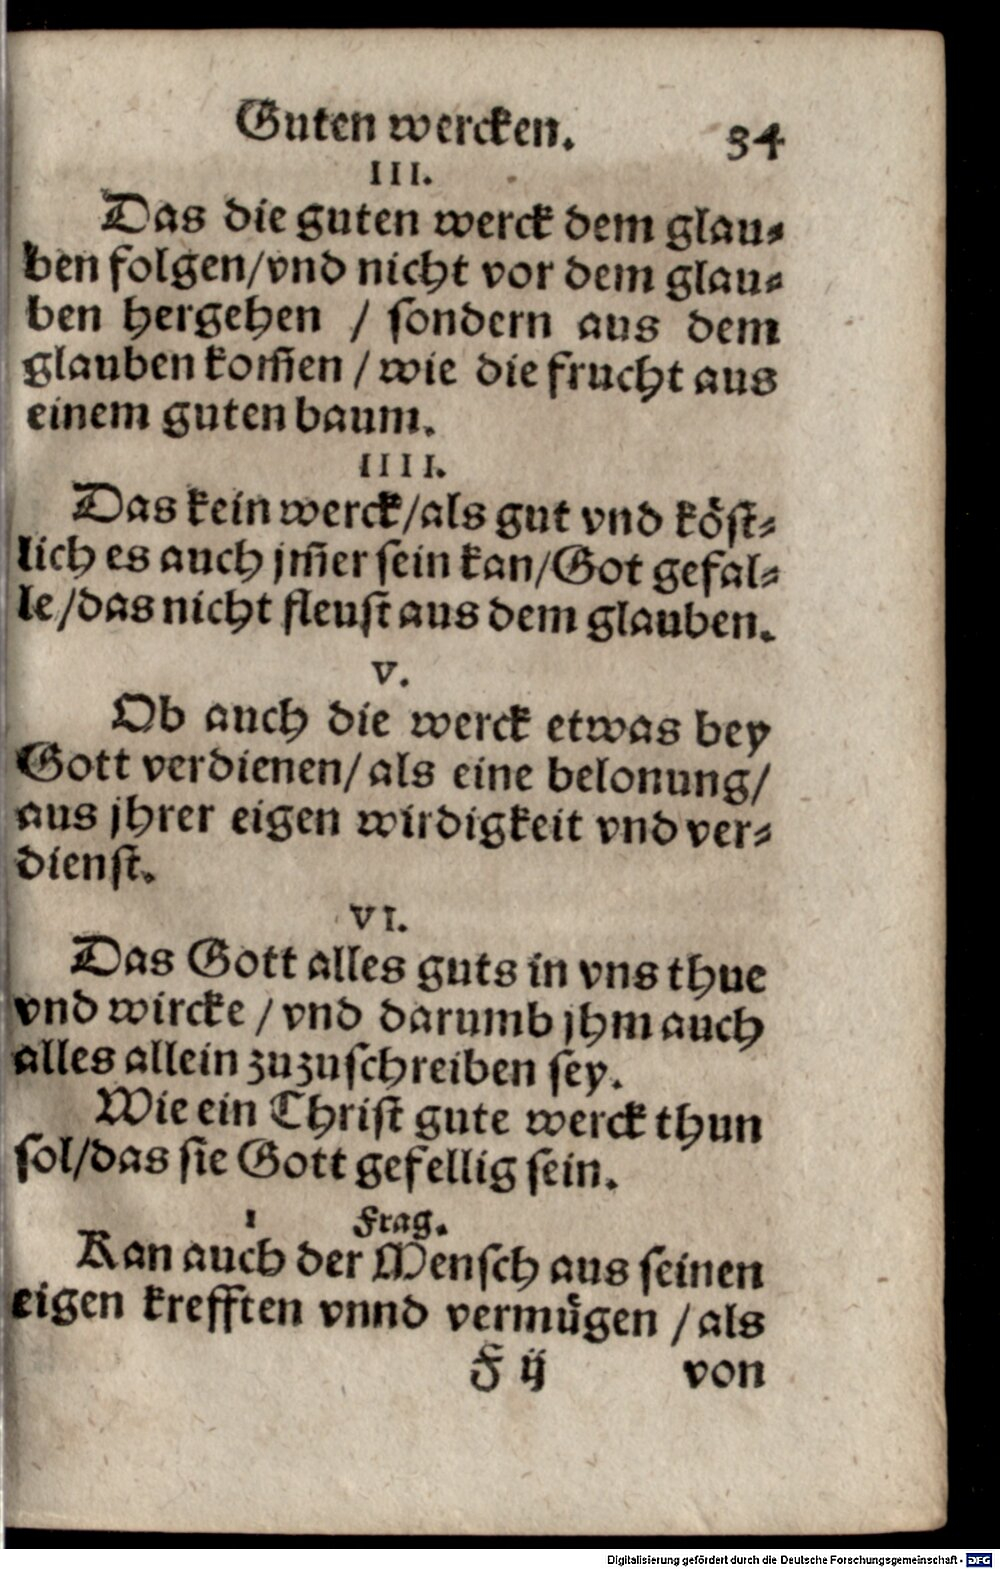 Guten wercken. 34
III.
Das die guten werck dem glau⸗
ben folgen/vnd nicht vor dem glau⸗
ben hergehen / sondern aus dem
glauben kom̃en / wie die frucht aus
einem guten baum.
IIII.
Das kein werck/als gut vnd köst⸗
lich es auch jm̃er sein kan/Got gefal⸗
le/das nicht fleust aus dem glauben.
V.
Ob auch die werck etwas bey
Gott verdienen/ als eine belonung/
aus jhrer eigen wirdigkeit vnd ver⸗
dienst.
VI.
Das Gott alles guts in vns thue
vnd wircke / vnd darumb jhm auch
alles allein zuzuschreiben sey.
Wie ein Christ gute werck thun
sol/das sie Gott gefellig sein.
1 Frag.
Kan auch der Mensch aus seinen
eigen krefften vnnd vermügen / als
F ij von
Digitalisierung gefördert durch die Deutsche Forschungsgemeinschaft - DFG